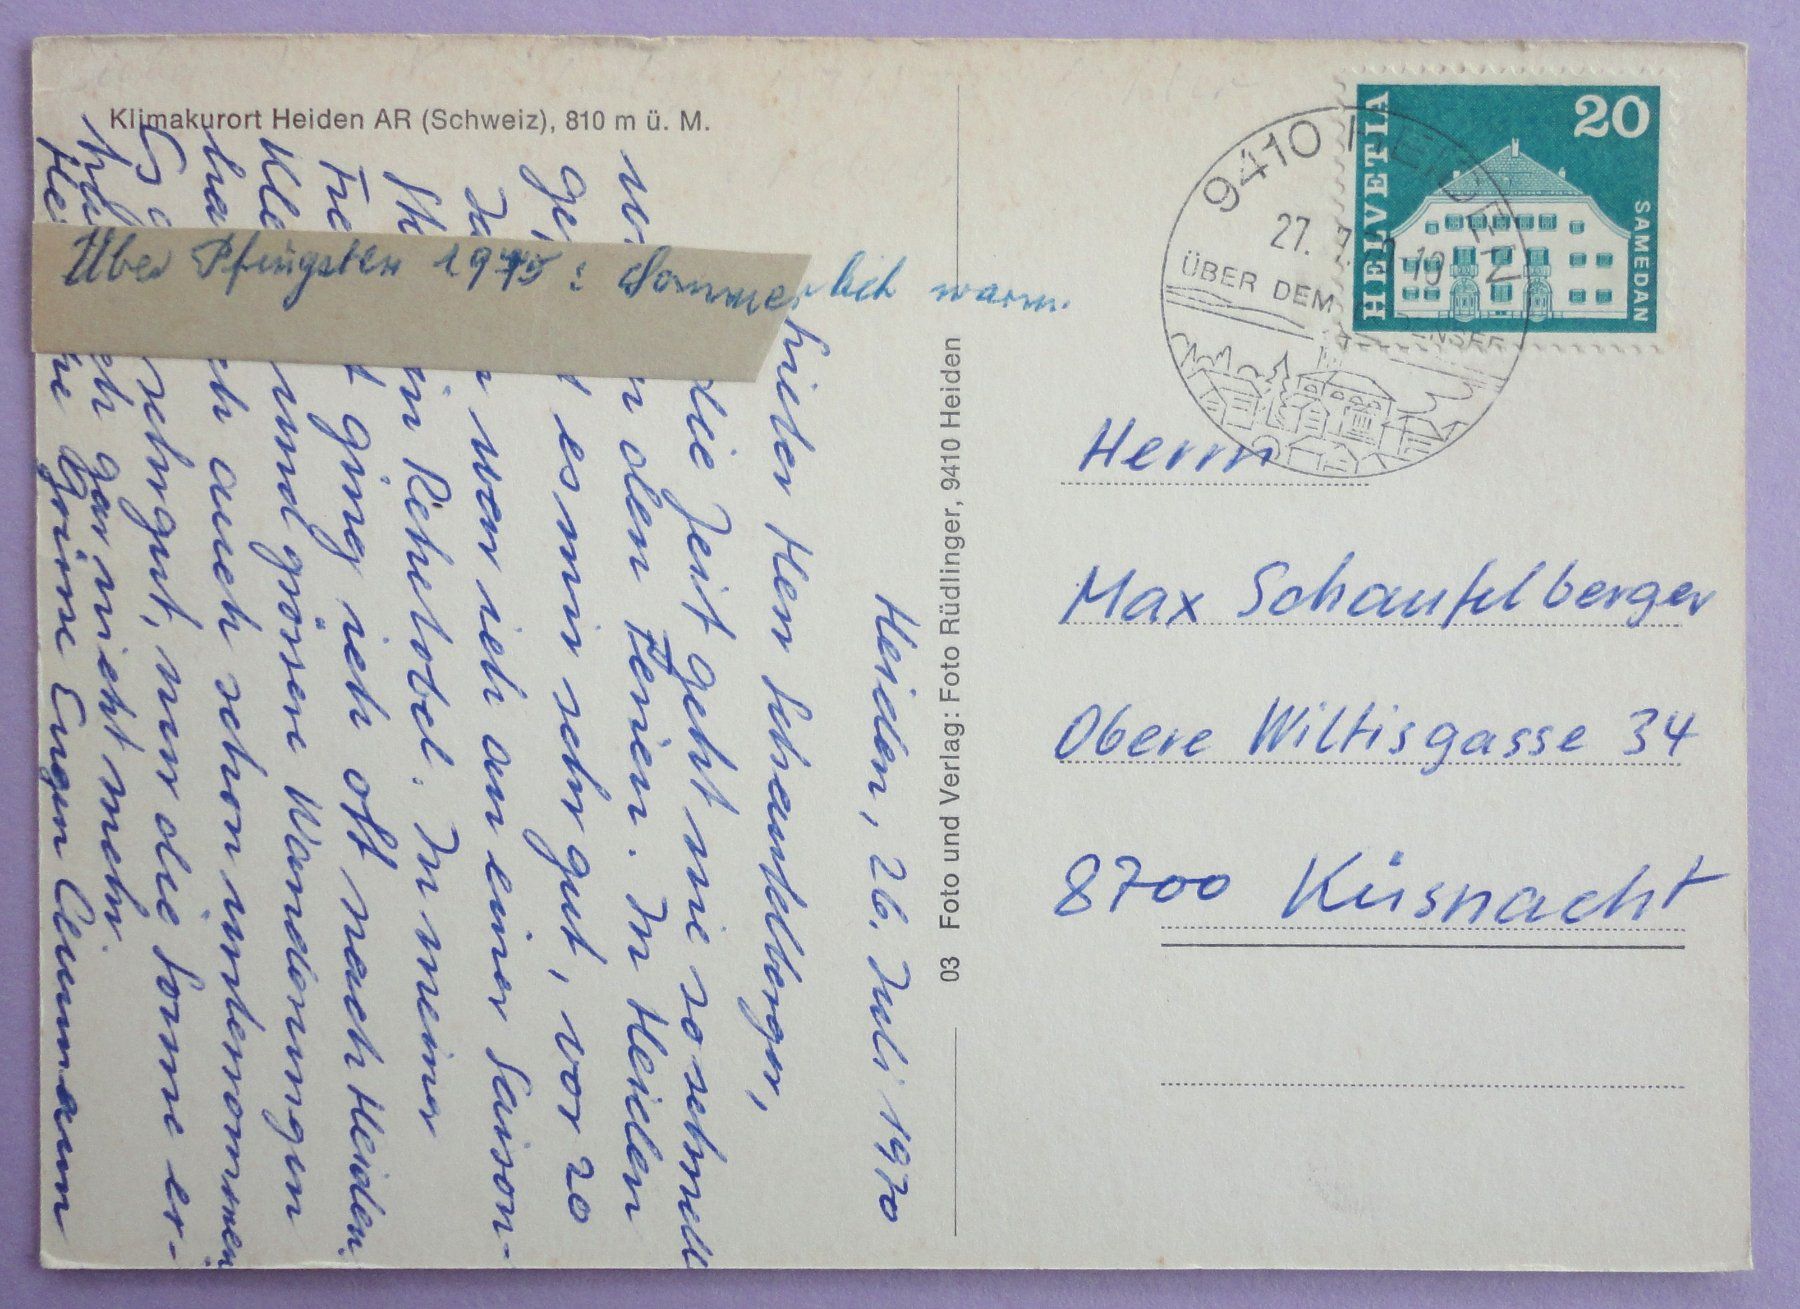 Klimakurort Heiden AR (Schweiz), 810 m ü. M.
Über Pfingsten 1975: Sommerlich warm.
Heiden, 26. Juli 1970
Herr Schaufelberger,
die Zeit geht nie so schnell
in den Ferien. In Heiden
es mir sehr gut, vor 20
war ich an einer Saison-
in Rehetobel. In meiner
ging ich oft nach Heiden.
und grösere Wanderungen
ich auch schon unternommen
sehr gut, nur die Sonne er-
gar nicht mehr
Grüne Eugen
03 Foto und Verlag: Foto Rüdlinger, 9410 Heiden
9410 HEIDEN
27.
ÜBER DEM
HELVETIA
20
SAMEDAN
Herrn
Max Schaufelberger
Obere Wiltisgasse 34
8700 Küsnacht